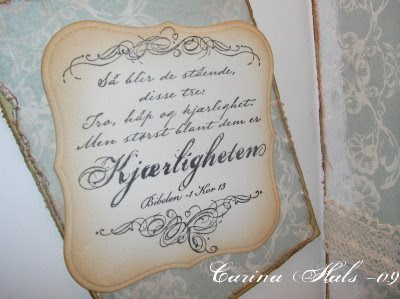 Så blir de stående,
disse tre:
Tro, håp og kjærlighet.
Men størst blant dem er
Kjærligheten
Bibelen -1 Kor 13
Carina Hals -09